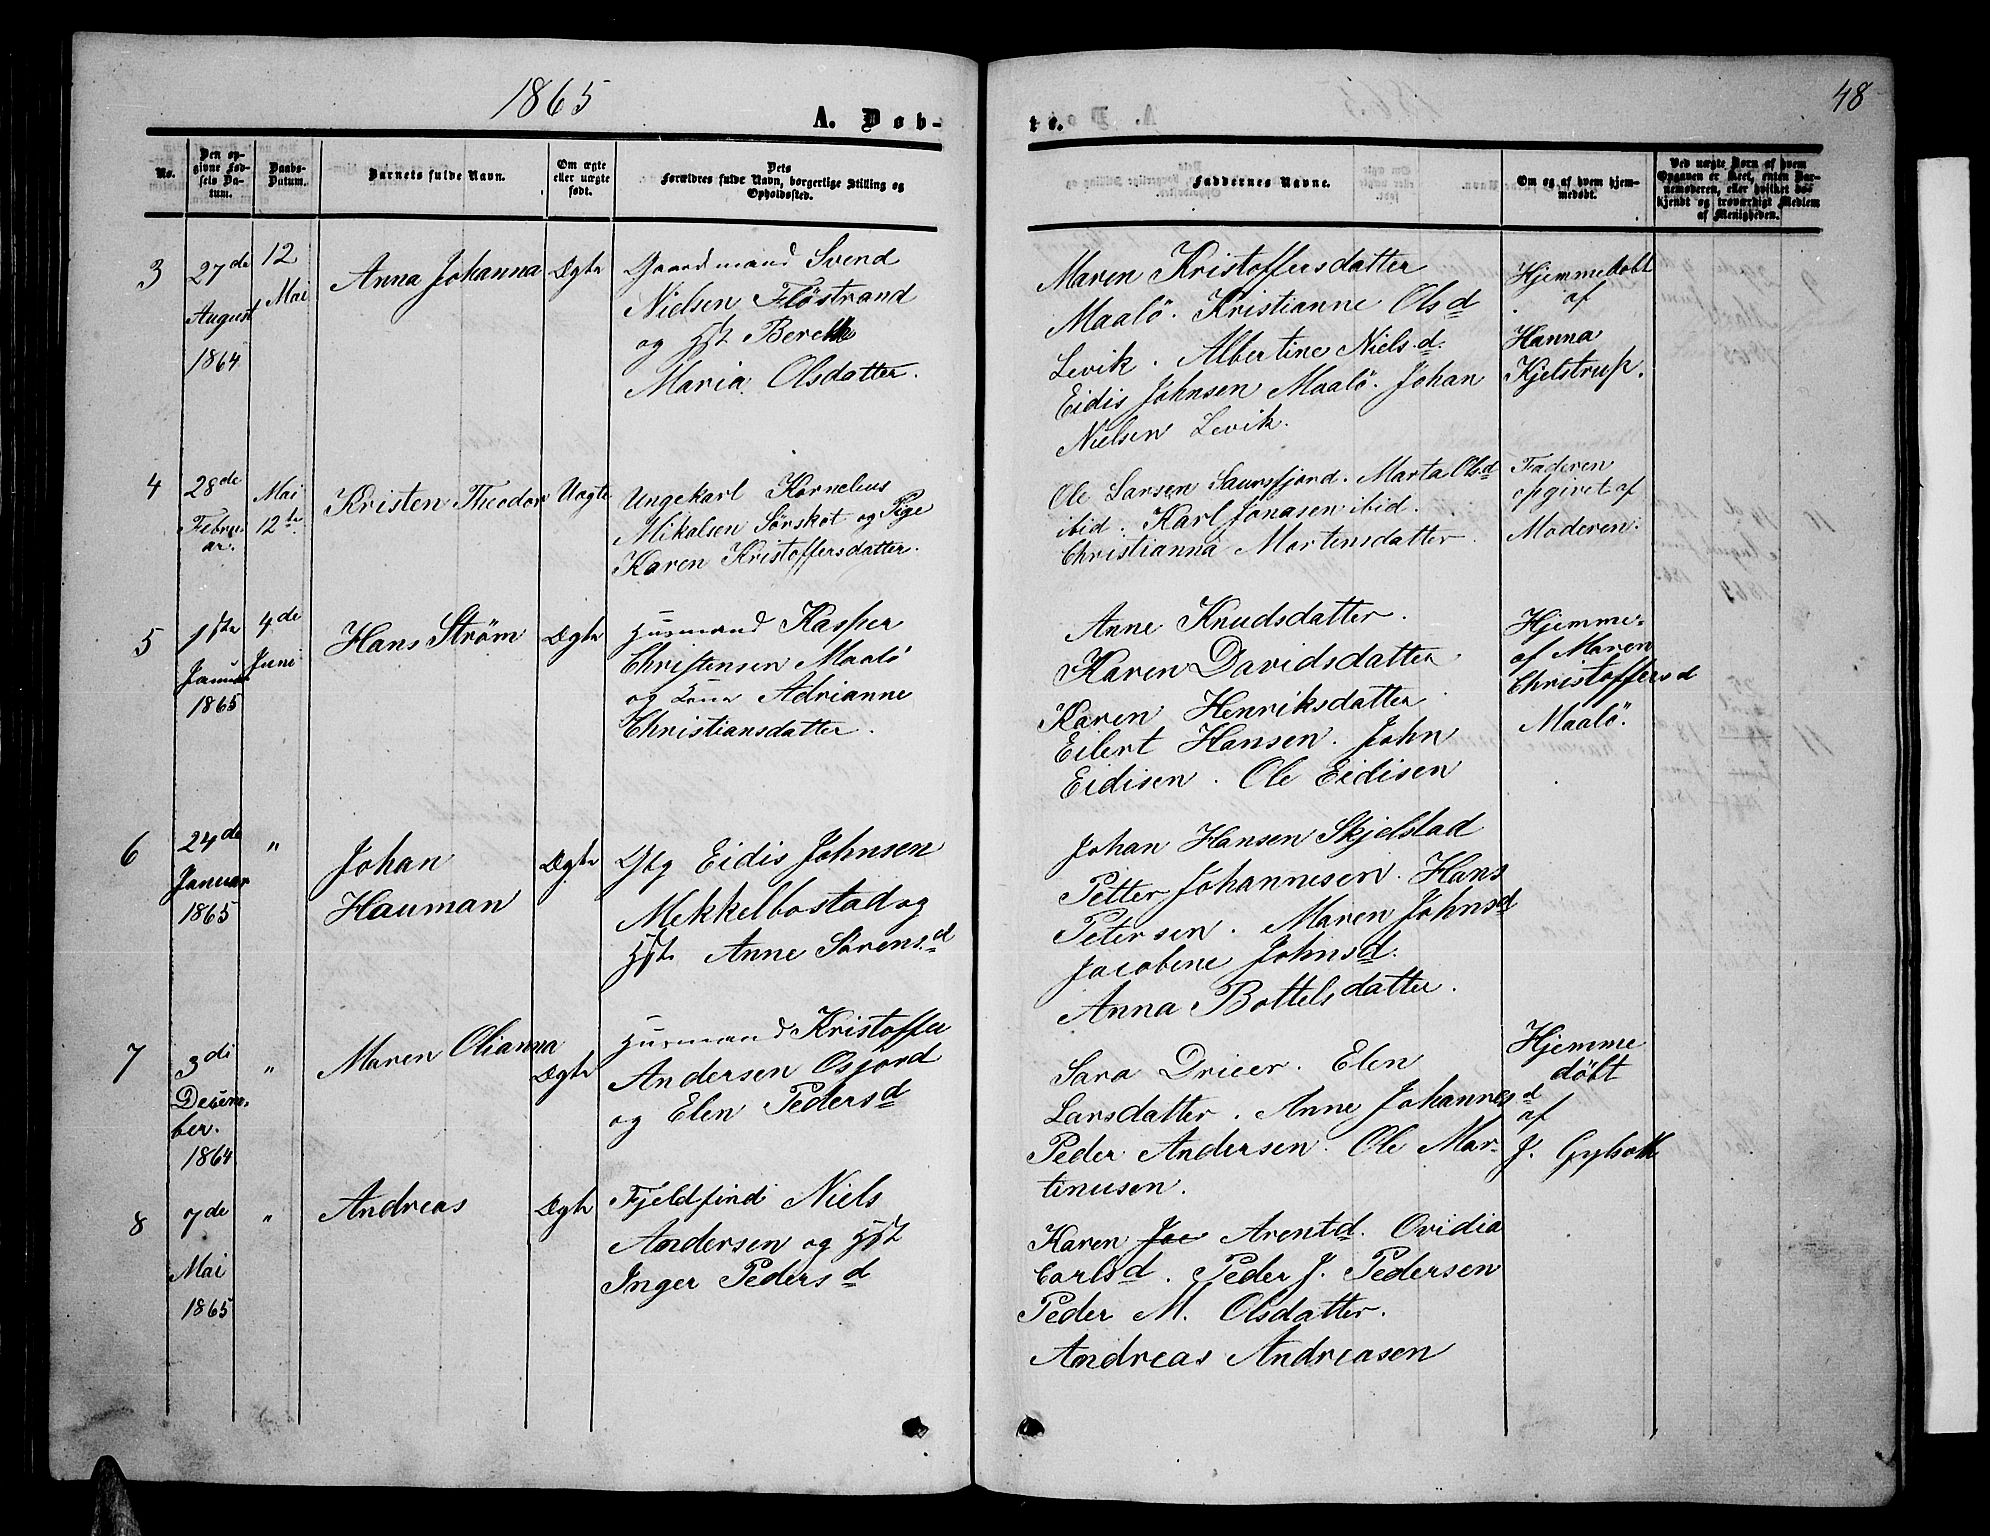 1865
A. Døb-
te.
48
No.
Den op-
givne Fød-
sels Da-
tum.
Daabs-
Datum.
Barnets fulde Navn.
Om ægte
eller uægte
født.
Dets
Forældres fulde Navn, borgerlige Stilling og
Opholdssted.
Faddernes Navne.
Om og af hvem hjem-
medøbt.
Ved uægte Børn af hvem
Opgaven er skeet, enten Bar-
nemoderen, eller hvilket bekjendt og troværdigt Medlem
af Menigheden.
3
27de
August
1864
12
Mai
Anna Johanna
Ægte
Gaardmand Svend
Nielsen Flöstrand
og Hst Berethe
Maria Olsdatter.
Maren Kristoffersdatter
Maalö. Kristianne Olsd
Levik. Albertine Nielsd.
Eidis Johnsen Maalö. Johan
Nielsen Levik.
Hjemmedobt
af
Hanna
Kjelstrup.
4
28de
Febru-
ar.
Mai
12te
Kristen Theodor
Uægte
Ungekarl Kornelius
Mikalsen Sörskot og Pige
Karen Kristoffersdatter.
Ole Larsen Saursfjord. Marta Olsd
ibid. Karl Jonasen ibid.
Christianna Mortensdatter.
Faderen
opgivet af
Moderen.
5
1ste
Januar
1865
4de
Juni
Hans Strøm
Ægte
Husmand Kasper
Christensen Maalö
og Kone Adrianne
Christiansdatter.
Anne Knudsdatter.
Karen Davidsdatter
Karen Henriksdatter
Eilert Hansen. John
Eidisen. Ole Eidisen
Hjemme-
af Maren
Christoffersd
Maalö.
6
24de
Januar
1865
"
Johan
Hauman
Ægte
Gbg Eidis Johnsen
Mekkelbostad og
Hst Anne Sörensd
Johan Hansen Skjelstad
Petter Johannesen. Hans
Petersen. Maren Johnsd
Jacobine Johnsd.
Anna Bottelsdatter.
7
3di
Decem-
ber.
1864
"
Maren Olianna
Ægte
Husmand Kristoffer
Andersen Osjord
og Elen Pedersd
Sara Dreier. Elen
Larsdatter. Anne Johannesd
Peder Andersen. Ole Mar-
tinusen.
Hjemme
døbt
af
J.
8
7de
Mai
1865
"
Andreas
Ægte
Fjeldfind Niels
Andersen og Hst
Inger Pedersd
Karen Jac Arentd. Ovidia
Carlsd. Peder J. Pedersen
Peder M. Olsdatter.
Andreas Andreasen